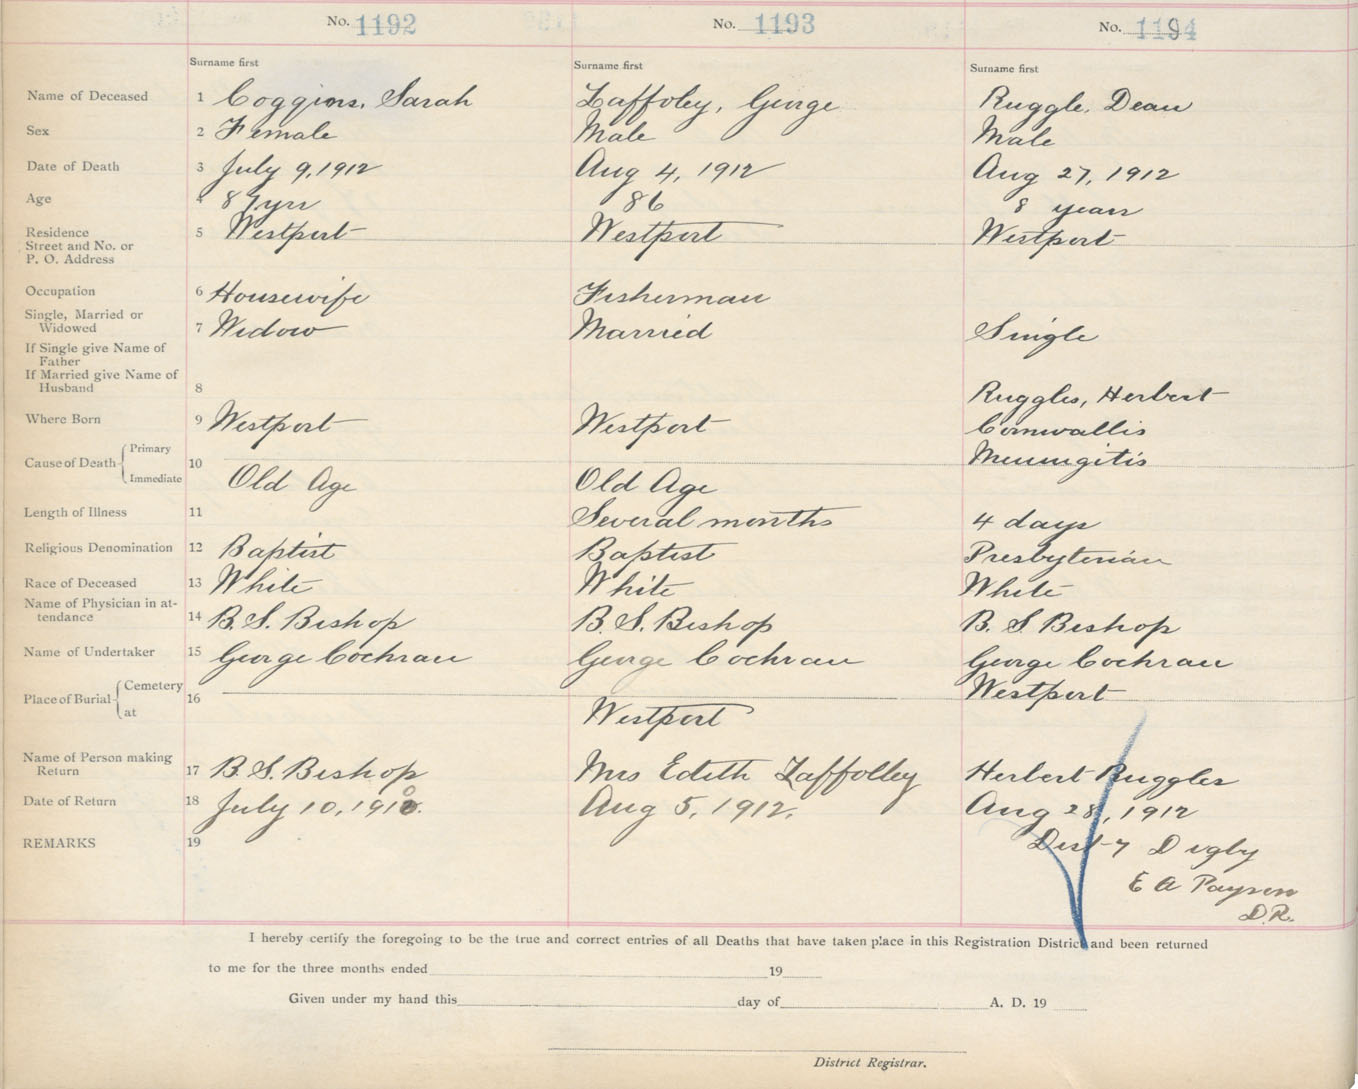 No. 1192 No. 1193 No. 1194
Surname first Surname first Surname first
Name of Deceased 1 Coggins, Sarah Laffoley, George Ruggle, Dean
Sex 2 Female Male Male
Date of Death 3 July 9, 1912 Aug 4, 1912 Aug 27, 1912
Age 4 87 yrs 86 8 years
Residence 5 Westport Westport Westport
Street and No. or
P. O. Address
Occupation 6 Housewife Fisherman
Single, Married or
Widowed 7 Widow Married Single
If Single give Name of
Father
If Married give Name of
Husband 8 Ruggles, Herbert
Where Born 9 Westport Westport Cornwallis
Cause of Death Primary 10 Meningitis
Immediate Old Age Old Age
Length of Illness 11 Several months 4 days
Religious Denomination 12 Baptist Baptist Presbyterian
Race of Deceased 13 White White White
Name of Physician in at-
tendance 14 B. S. Bishop B. S. Bishop B. S Bishop
Name of Undertaker 15 George Cochran George Cochran George Cochran
Place of Burial Cemetery 16 Westport
at Westport
Name of Person making
Return 17 B. S. Bishop Mrs Edith Laffolley Herbert Ruggles
Date of Return 18 July 10, Aug 5, 1912. Aug 28, 1912
REMARKS 19 Dist 7 Digby
E A Payson
D.R.
I hereby certify the foregoing to be the true and correct entries of all Deaths that have taken place in this Registration District and been returned
to me for the three months ended 19
Given under my hand this day of A. D. 19
District Registrar.